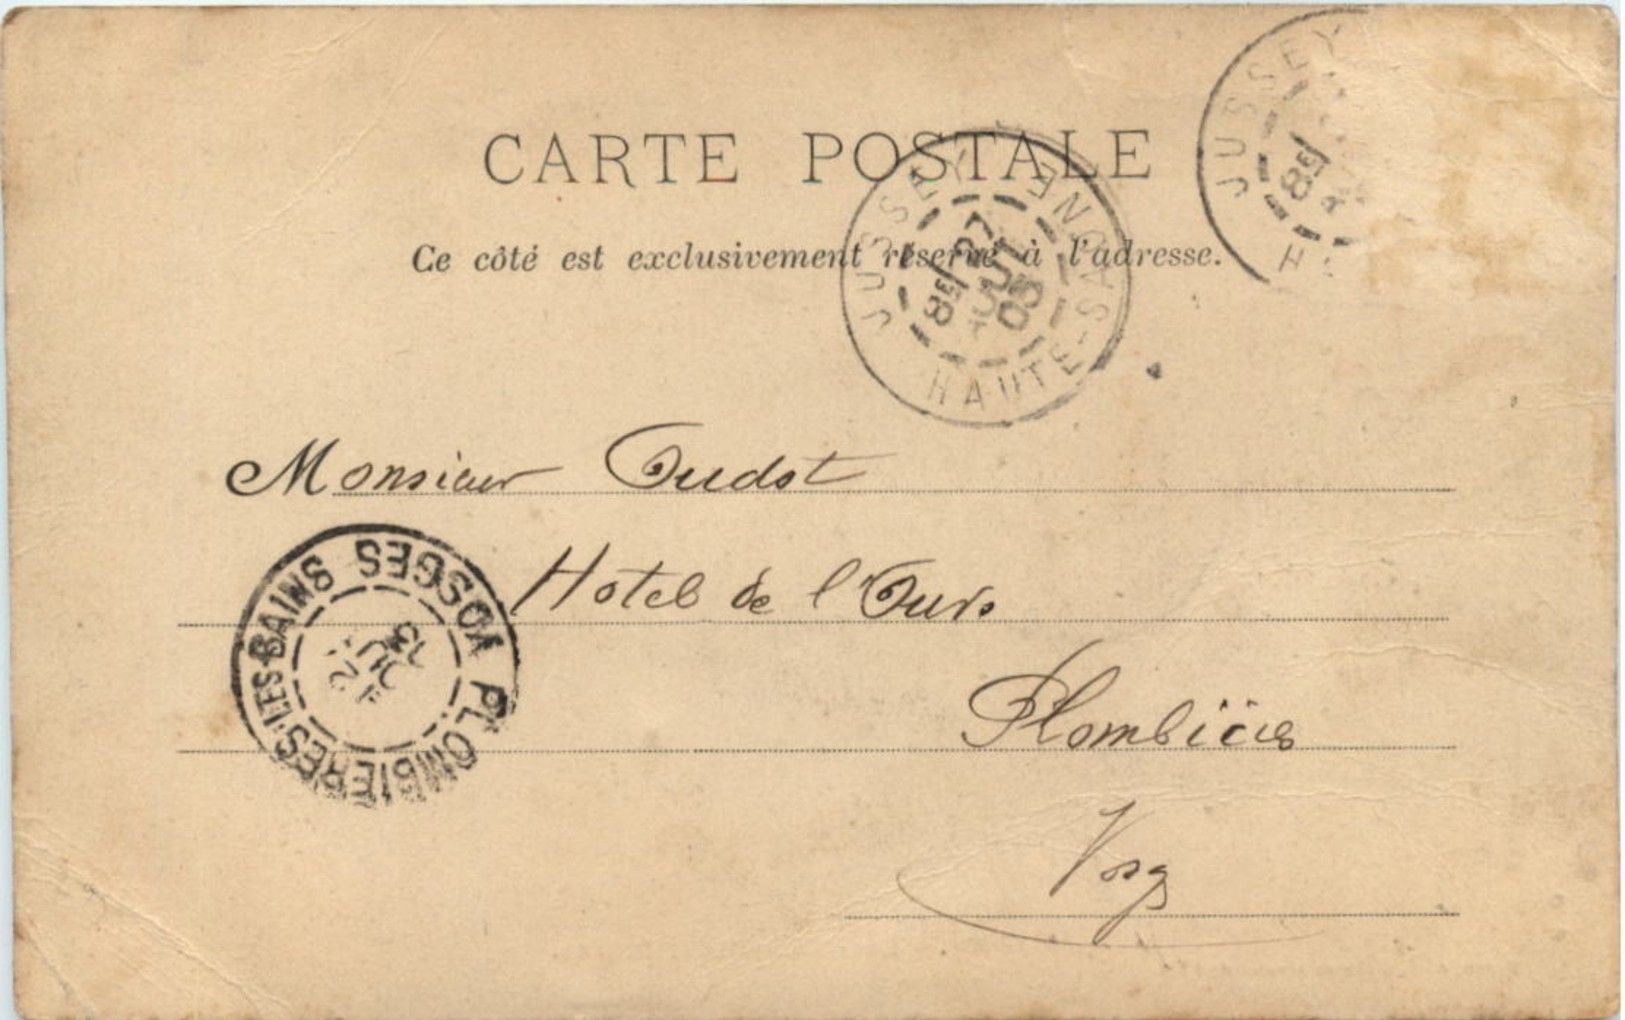 CARTE POSTALE
Ce côté est exclusivement réservé à l'adresse.
JUSSEY
8E/27
AOUT
03
HAUTE-SAONE
JUSSEY
8E/
H
Monsieur Oudot
Hotel de l'Ours
Plombières
Vosg
PLOMBIERES-LES-BAINS VOSGES